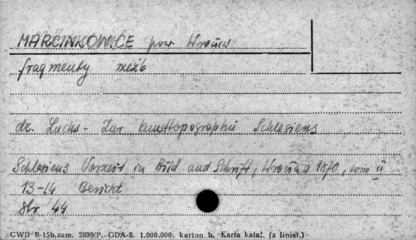 MARCINKOWICE pow Wrocław
fragmenty rzeźb
dr. Luchs - Zur Kunsttopographie Schlesiens
Schlesiens Vorzeit in Bild und Schrift, Wrocław 1870, tom II
13-14 Bericht
Str 44
CWD B-15b, zam. 2899/P.-GDA-8. 1.000.000. karton b. Karta katal. (z liniat.)